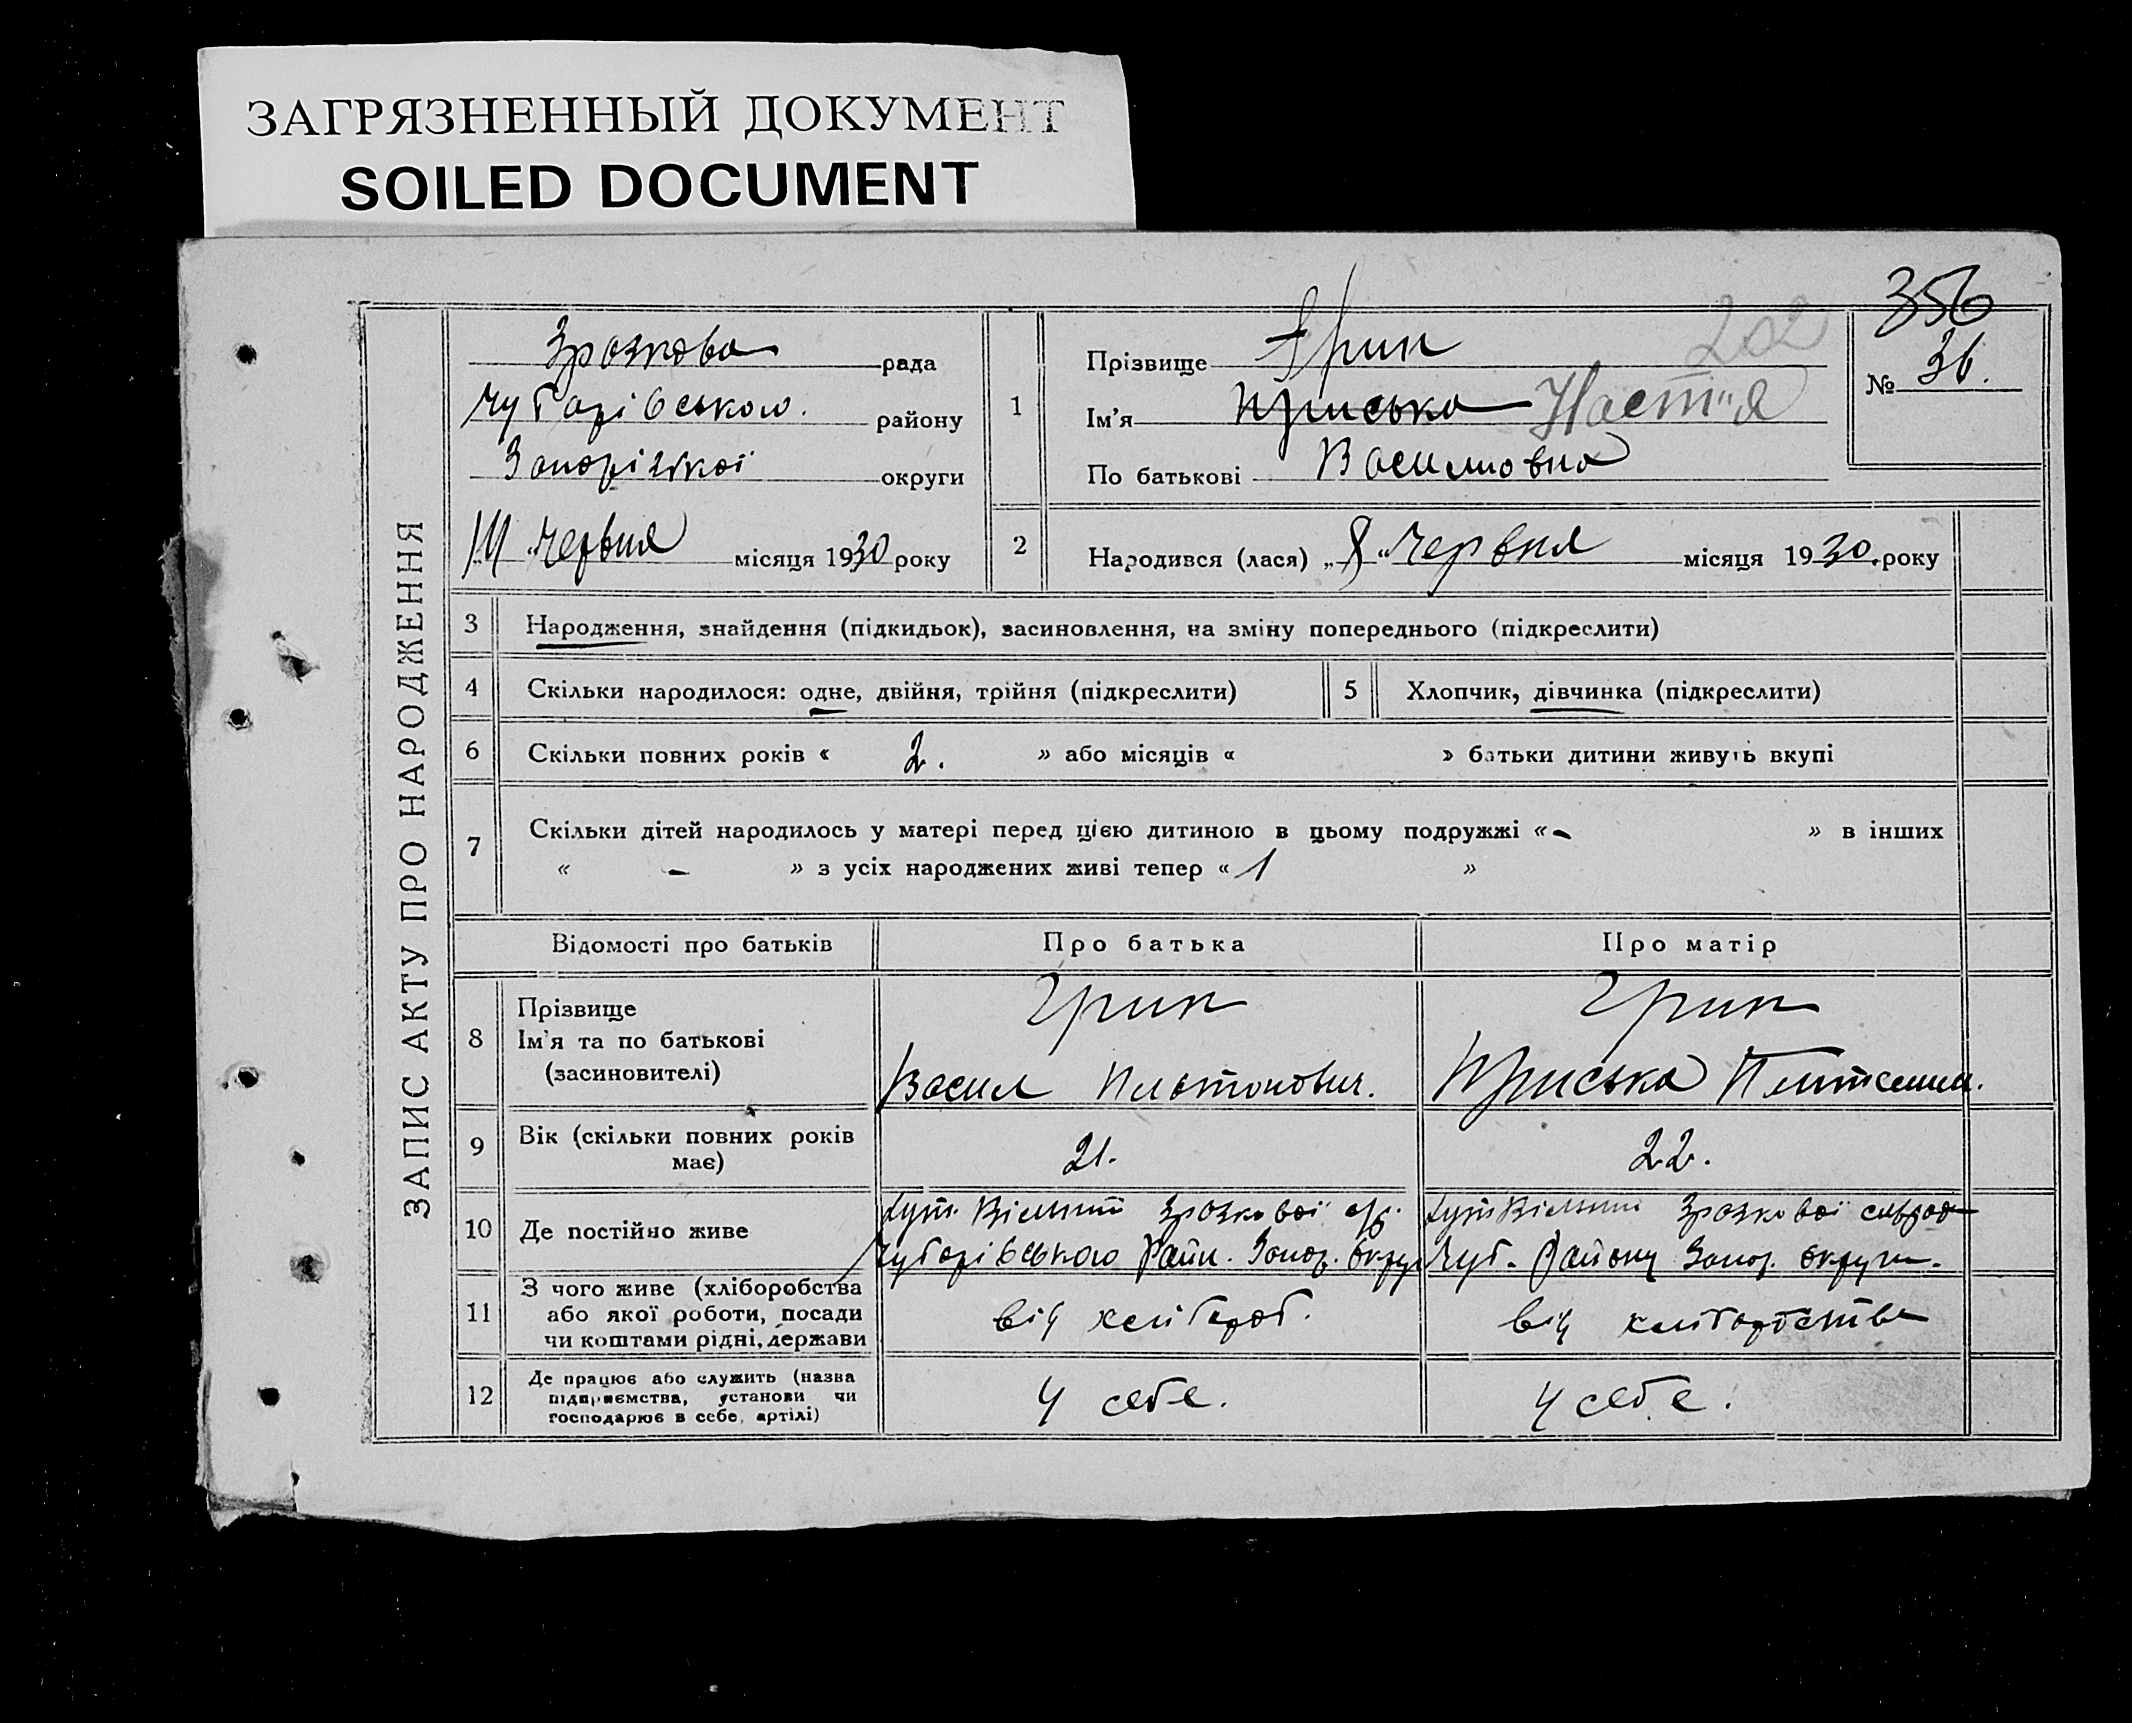 ЗАГРЯЗНЕННЫЙ ДОКУМЕНТ
SOILED DOCUMENT
356
ЗАПИС АКТУ ПРО НАРОДЖЕННЯ
Зразкова рада
Чубарівського району
Запорізької округи
червня місяця 1930 року
1
Прізвище Грик 202
Ім'я Приська Настя
По батькові Василовна
№ 36.
2 Народився (лася) „8“ червня місяця 1930 року
3 Народження, знайдення (підкидьок), засиновлення, на зміну попереднього (підкреслити)
4 Скільки народилося: одне, двійня, трійня (підкреслити) 5 Хлопчик, дівчинка (підкреслити)
6 Скільки повних років « 2. » або місяців « » батьки дитини живуть вкупі
7 Скільки дітей народилось у матері перед цією дитиною в цьому подружжі « - » в інших
« - » з усіх народжених живі тепер « 1 »
Відомості про батьків Про батька Про матір
8 Прізвище
Ім'я та по батькові
(засиновителі)
Грик
Васил Платонович.
Грик
Приська
9 Вік (скільки повних років
має)
21. 22.
10 Де постійно живе
хут. Вільний Зразкової с/р.
Чубарівського Райн. Запор. Округ
хут Вільний Зразкової
Чуб. Району Запор. округи.
11 З чого живе (хліборобства
або якої роботи, посади
чи коштами рідні, держави
від хлібороб. від хліборобства
12 Де працює або служить (назва
підприємства, установи чи
господарює в себе, артілі)
У себе. У себе.